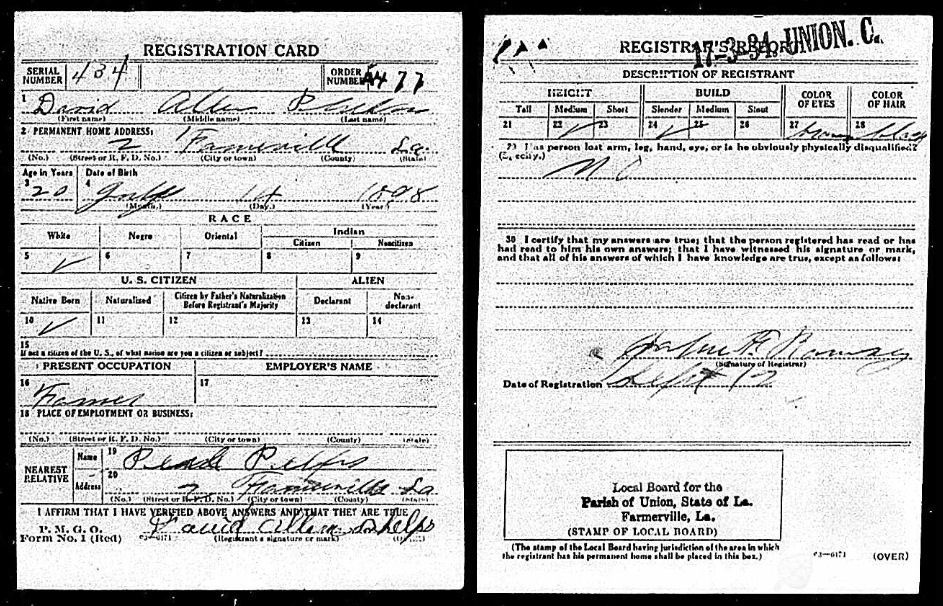 REGISTRATION CARD
SERIAL NUMBER 434
ORDER NUMBER A477
1 David Allen Phelps
(First name) (Middle name) (Last name)
2 PERMANENT HOME ADDRESS:
2 Farmerville La.
(No.) (Street or R. F. D. No.) (City or town) (County) (State)
Age in Years Date of Birth
3 20 4 July 14 1898
(Month.) (Day.) (Year.)
RACE
White Negro Oriental Indian
Citizen Noncitizen
5 ✓ 6 7 8 9
U. S. CITIZEN ALIEN
Native Born Naturalized Citizen by Father's Naturalization Before Registrant's Majority Declarant Non-declarant
10 ✓ 11 12 13 14
15
If not a citizen of the U. S., of what nation are you a citizen or subject?
PRESENT OCCUPATION EMPLOYER'S NAME
16 Farmer 17
18 PLACE OF EMPLOYMENT OR BUSINESS:
(No.) (Street or R. F. D. No.) (City or town) (County) (State)
NEAREST RELATIVE
Name 19 Phelps
Address 20 2 Farmerville La
(No.) (Street or R. F. D. No.) (City or town) (County) (State)
I AFFIRM THAT I HAVE VERIFIED ABOVE ANSWERS AND THAT THEY ARE TRUE
P. M. G. O.
Form No. 1 (Red) 03—6171 David Allen Phelps
(Registrant's signature or mark) (OVER)
REGISTRAR'S REPORT
17-3-34. UNION. C.
DESCRIPTION OF REGISTRANT
HEIGHT BUILD COLOR OF EYES COLOR OF HAIR
Tall Medium Short Slender Medium Stout
21 22 ✓ 23 24 ✓ 25 26 27 brown 28 black
29 Has person lost arm, leg, hand, eye, or is he obviously physically disqualified?
(Specify.)
NO
30 I certify that my answers are true; that the person registered has read or has
had read to him his own answers; that I have witnessed his signature or mark,
and that all of his answers of which I have knowledge are true, except as follows:
F. Ramsey
(Signature of Registrar)
Date of Registration Sept 12
Local Board for the
Parish of Union, State of La.
Farmerville, La.
(STAMP OF LOCAL BOARD)
(The stamp of the Local Board having jurisdiction of the area in which
the registrant has his permanent home shall be placed in this box.)
03—6171 (OVER)